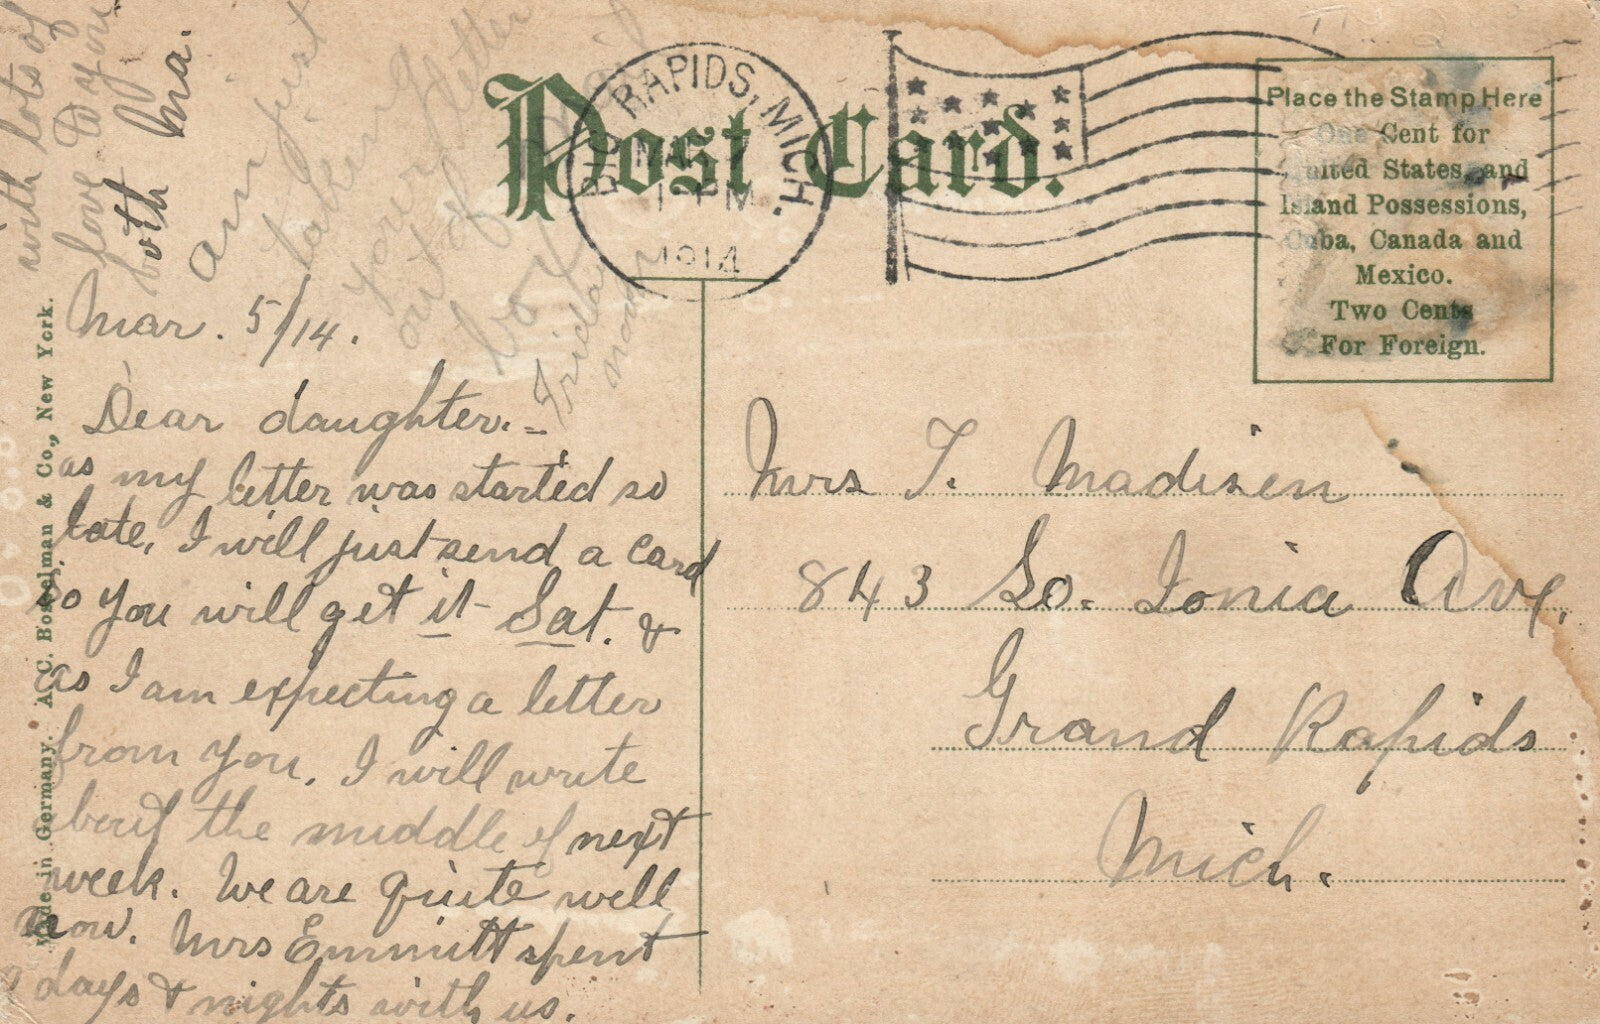 Post Card.
BIG RAPIDS, MICH.
MAR 7
12 M
1914
Place the Stamp Here
One Cent for
United States, and
Island Possessions,
Cuba, Canada and
Mexico.
Two Cents
For Foreign.
Made in Germany. A. C. Bosselman & Co., New York.
Mar. 5/14.
Dear daughter. -
as my letter was started so
late, I will just send a card
so you will get it Sat. &
as I am expecting a letter
from you. I will write
about the middle of next
week. We are quite well
now. Mrs Emmitt spent
days & nights with us.
with lots of
love to you
both Ma.
am just
taking
your letter
out of
box
Friday
noon
Mrs T. Madisen
843 So. Ionia Ave,
Grand Rapids
Mich.